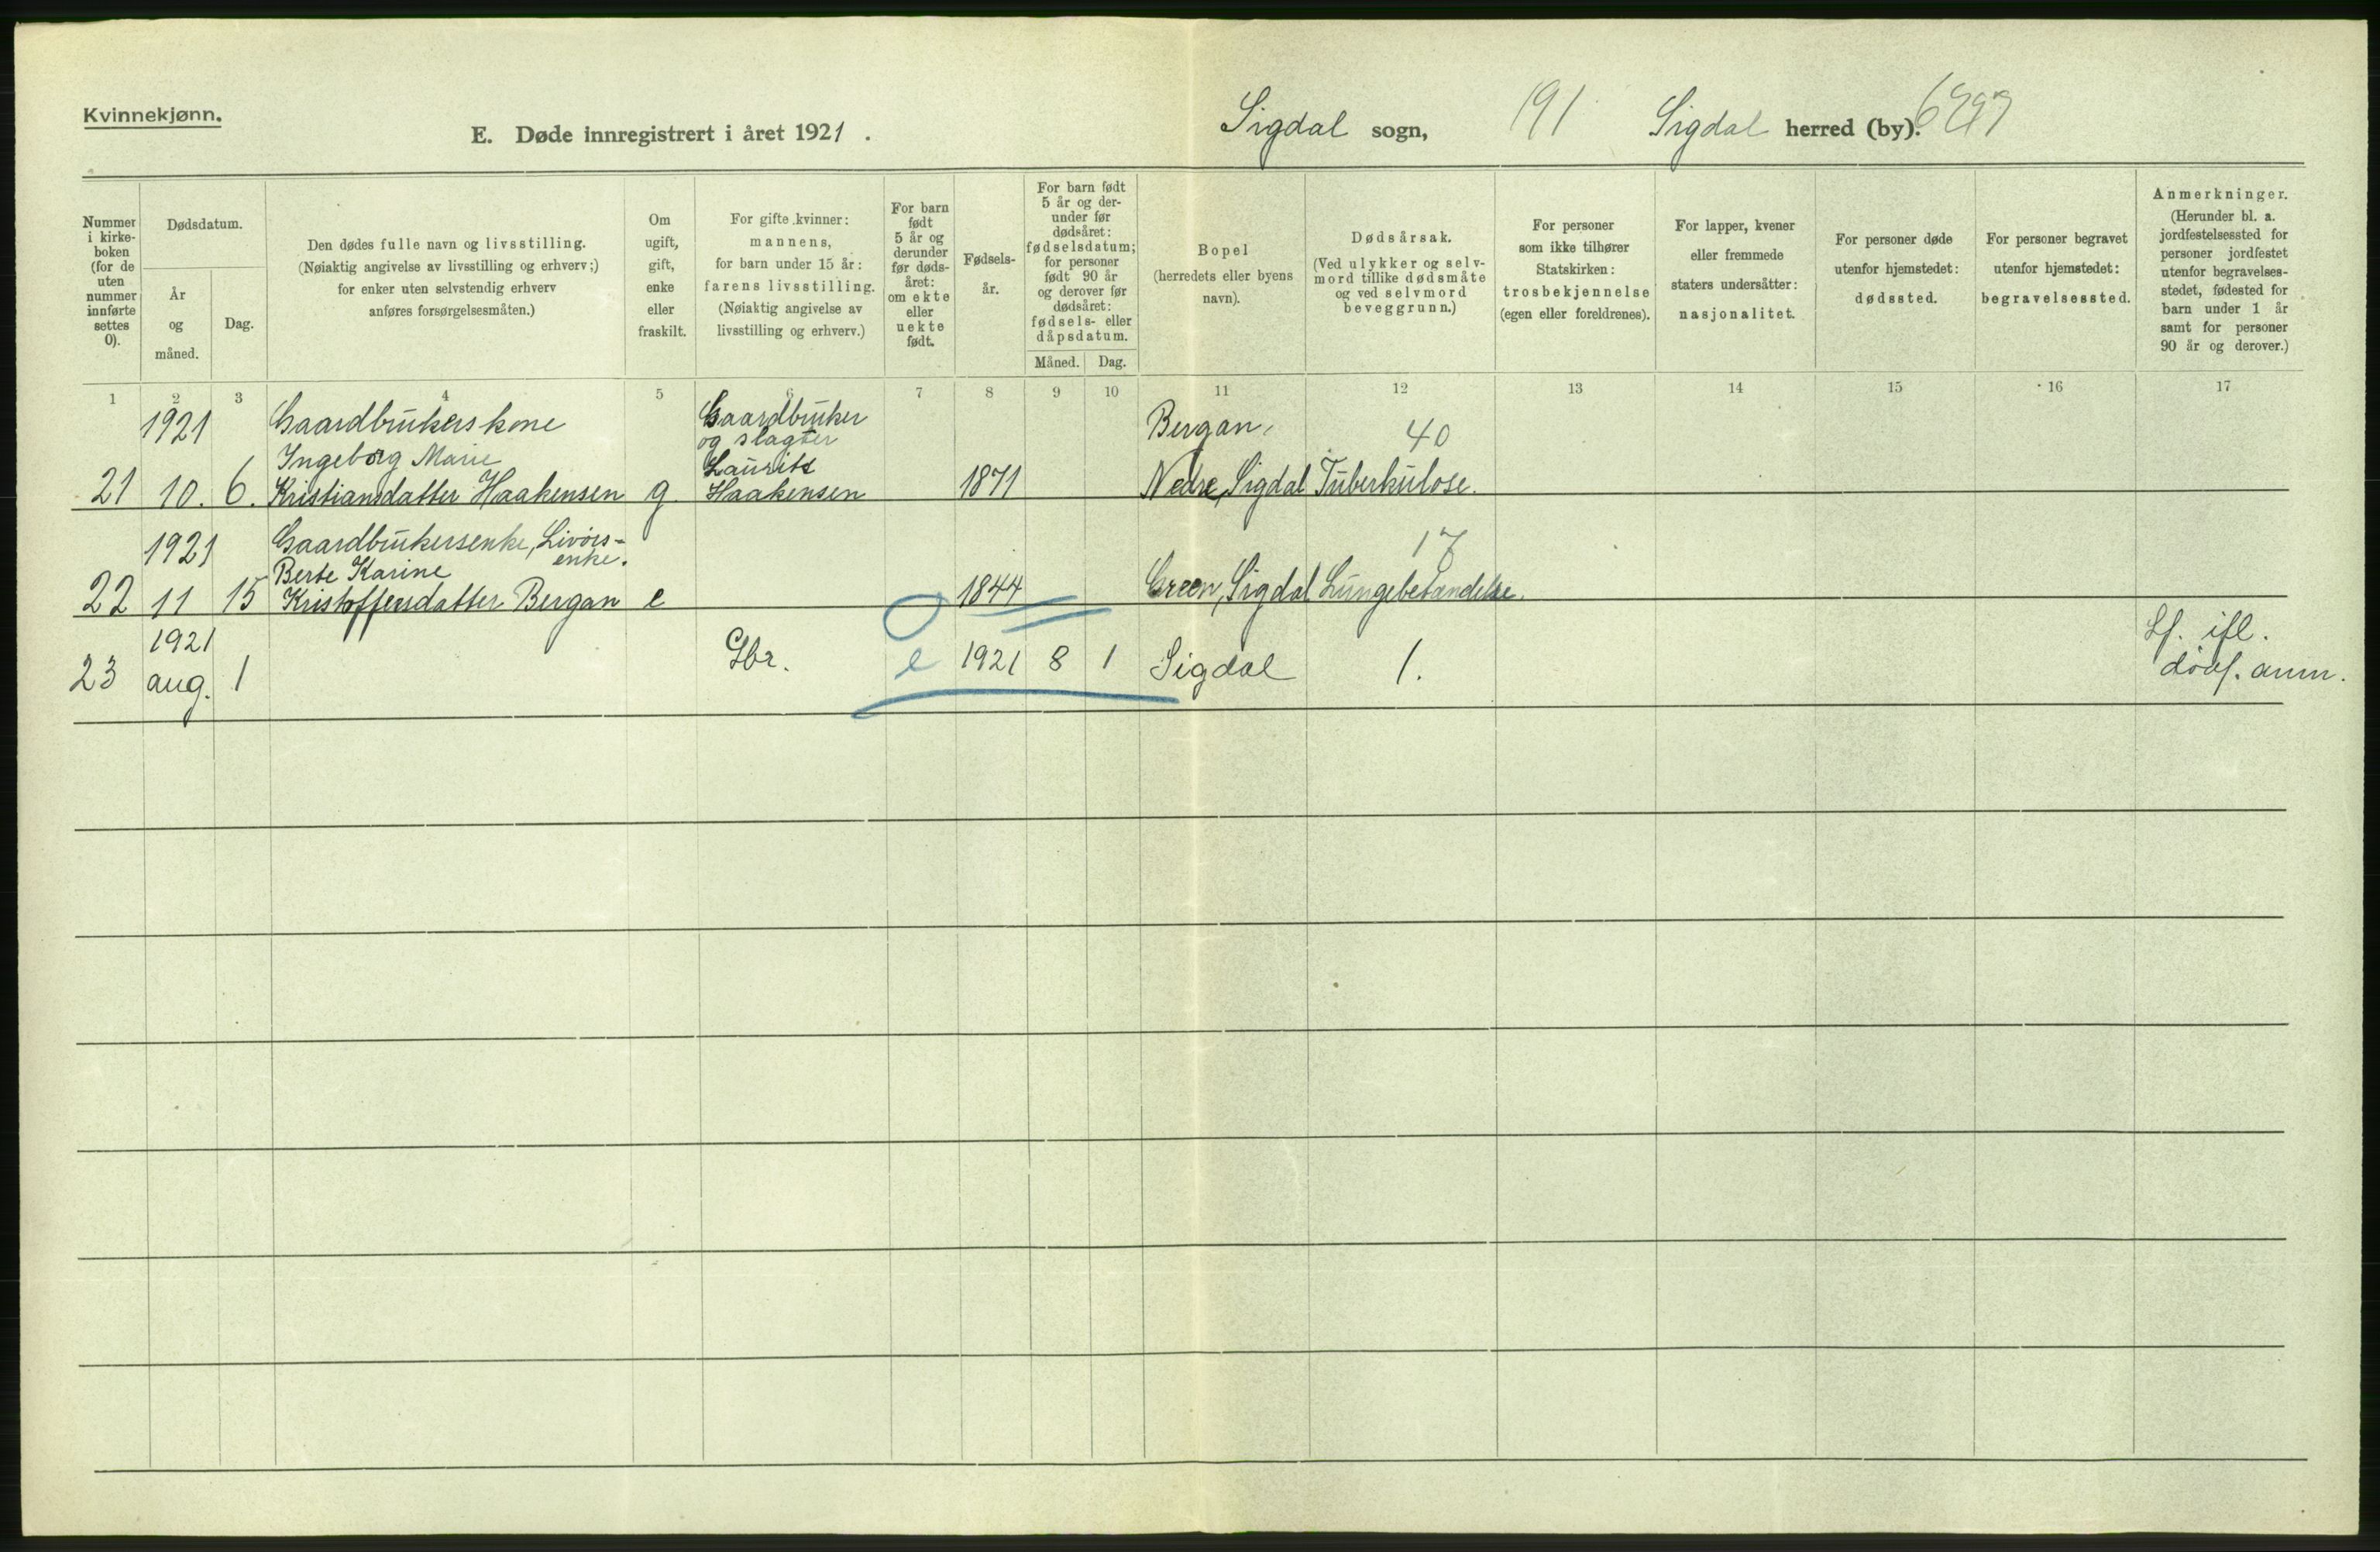 Kvinnekjønn.
E. Døde innregistrert i året 1921.
Sigdal sogn, 191 Sigdal herred (by).
Nummer i kirkeboken (for de uten nummer innførte settes 0).
Dødsdatum.
År og måned.
Dag.
Den dødes fulle navn og livsstilling.
(Nøiaktig angivelse av livsstilling og erhverv;)
for enker uten selvstendig erhverv
anføres forsørgelsesmåten.)
Om
ugift,
gift,
enke
eller
fraskilt.
For gifte kvinner:
mannens,
for barn under 15 år:
farens livsstilling.
(Nøiaktig angivelse av
livsstilling og erhverv.)
For barn
født
5 år og
derunder
før døds-
året:
om ekte
eller
uekte
født.
Fødsels-
år.
For barn født
5 år og der-
under før
dødsåret:
fødselsdatum;
for personer
født 90 år
og derover før
dødsåret:
fødsels- eller
dåpsdatum.
Måned. Dag.
Bopel
(herredets eller byens
navn).
Dødsårsak.
(Ved ulykker og selv-
mord tillike dødsmåte
og ved selvmord
beveggrunn.)
For personer
som ikke tilhører
Statskirken:
trosbekjennelse
(egen eller foreldrenes).
For lapper, kvener
eller fremmede
staters undersåtter:
nasjonalitet.
For personer døde
utenfor hjemstedet:
dødssted.
For personer begravet
utenfor hjemstedet:
begravelsessted.
Anmerkninger.
(Herunder bl. a.
jordfestelsessted for
personer jordfestet
utenfor begravelses-
stedet, fødested for
barn under 1 år
samt for personer
90 år og derover.)
1 2 3 4 5 6 7 8 9 10 11 12 13 14 15 16 17
1921 Gaardbrukerskone Gaardbruker Bergan, 40
Ingeborg Marie og slagter
Laurits
21 10. 6. Kristiansdatter Haakensen g. Haakensen 1871 Nedre, Sigdal Tuberkulose.
1921 Gaardbrukersenke, Livørs- 17
enke.
Berte Karine
22 11 15 Kristoffersdatter Bergan e 1844 Green, Sigdal Lungebetændelse.
1921 Lf. ifl.
23 aug. 1 Gbr. e 1921 8 1 Sigdal 1. dødf. anm.